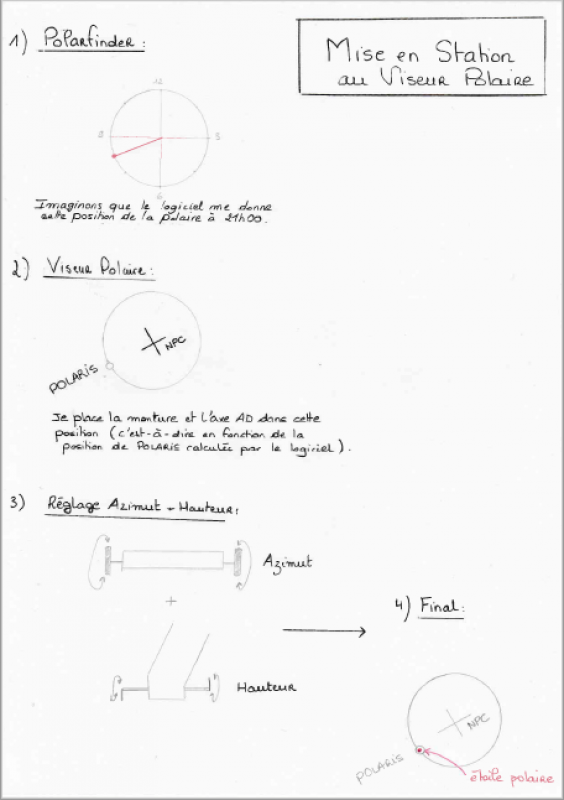 Mise en Station
au Viseur Polaire
1) Polarfinder :
12
9
3
6
Imaginons que le logiciel me donne
cette position de la polaire à 21h00.
2) Viseur Polaire :
NPC
POLARIS
Je place la monture et l'axe AD dans cette
position (c'est-à-dire en fonction de la
position de POLARIS calculée par le logiciel).
3) Réglage Azimut - Hauteur :
Azimut
+
Hauteur
4) Final :
NPC
POLARIS
étoile polaire